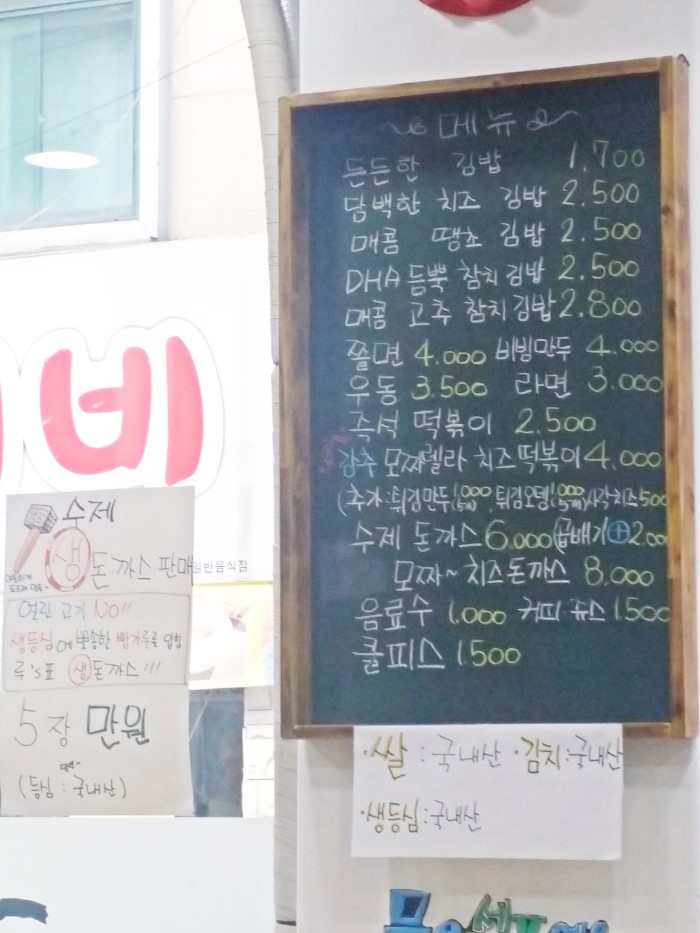 메뉴
든든한 김밥 1,700
담백한 치즈 김밥 2.500
매콤 땡초 김밥 2.500
DHA 듬뿍 참치김밥 2.500
매콤 고추 참치김밥 2.800
쫄면 4.000 비빔만두 4.000
우동 3.500 라면 3.000
즉석 떡볶이 2.500
강추 모짜렐라 치즈떡볶이 4.000
(추가:튀김만두 1,000 튀김오뎅 1,000 사각치즈 500
수제 돈까스 6.000 (곱배기 + 2.00
모짜~치즈돈까스 8.000
음료수 1.000 커피 쥬스 1.500
쿨피스 1.500
·쌀:국내산 ·김치:국내산
·생등심:국내산
네
수제
생 돈까스 판매
일반음식점
열린 고기 NO!!
생등심에 뽀송한 빵가루를 입힌
루's표 생 돈까스!!!
5장 만원
(등심:국내산)